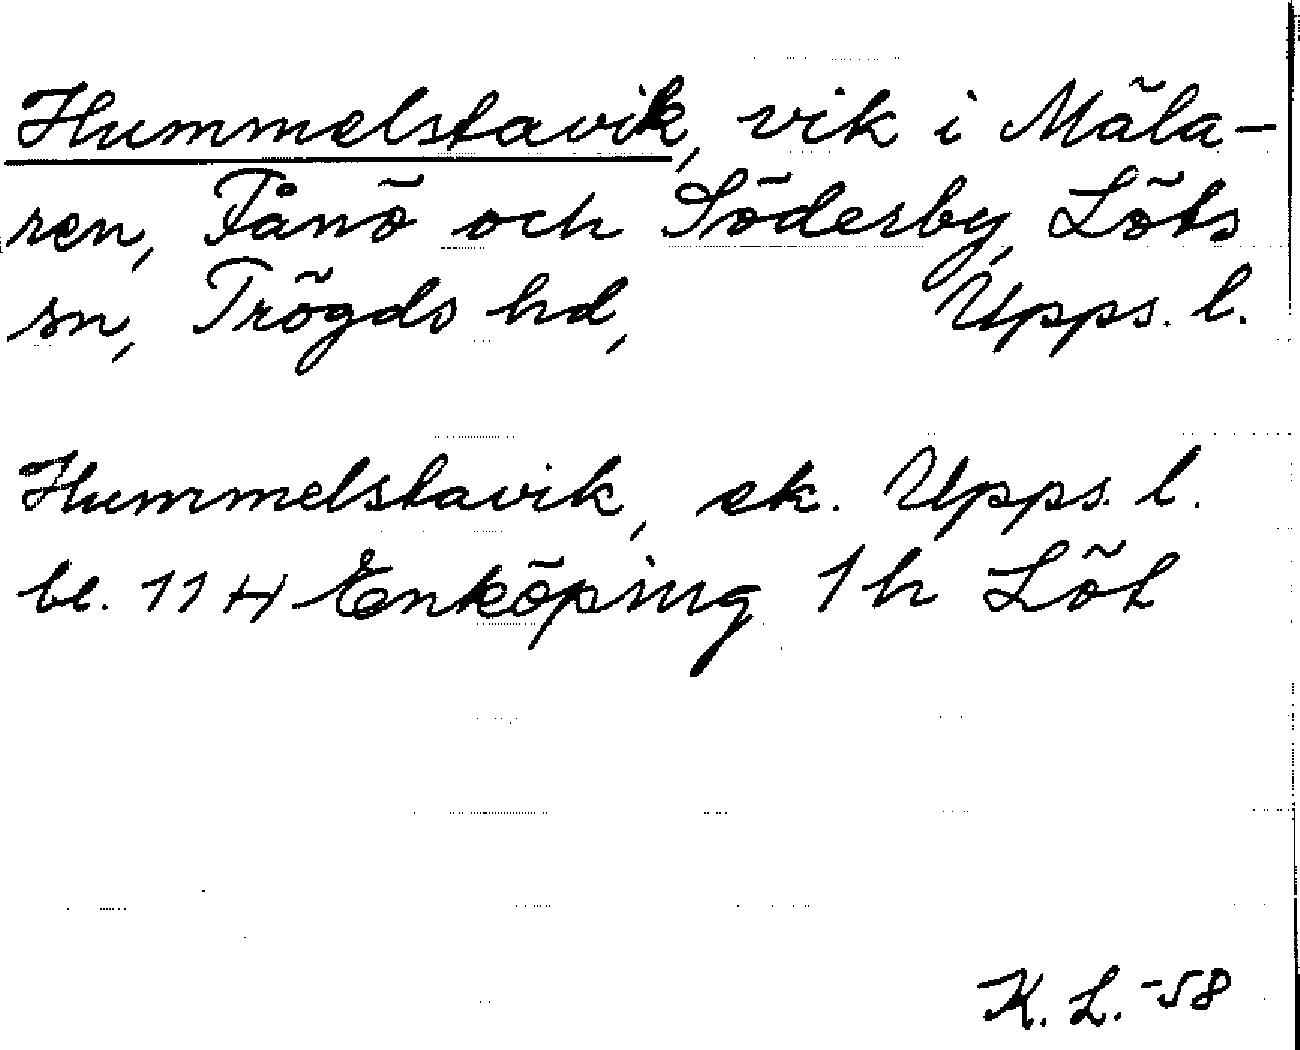 Hummelstavik, vik i Mäla-
ren, Fånö och Söderby, Löts
sn, Trögds hd, Upps. l.
Hummelstavik, ek. Upps. l.
bl. 11 H Enköping 1 h Löt
K. L. -58